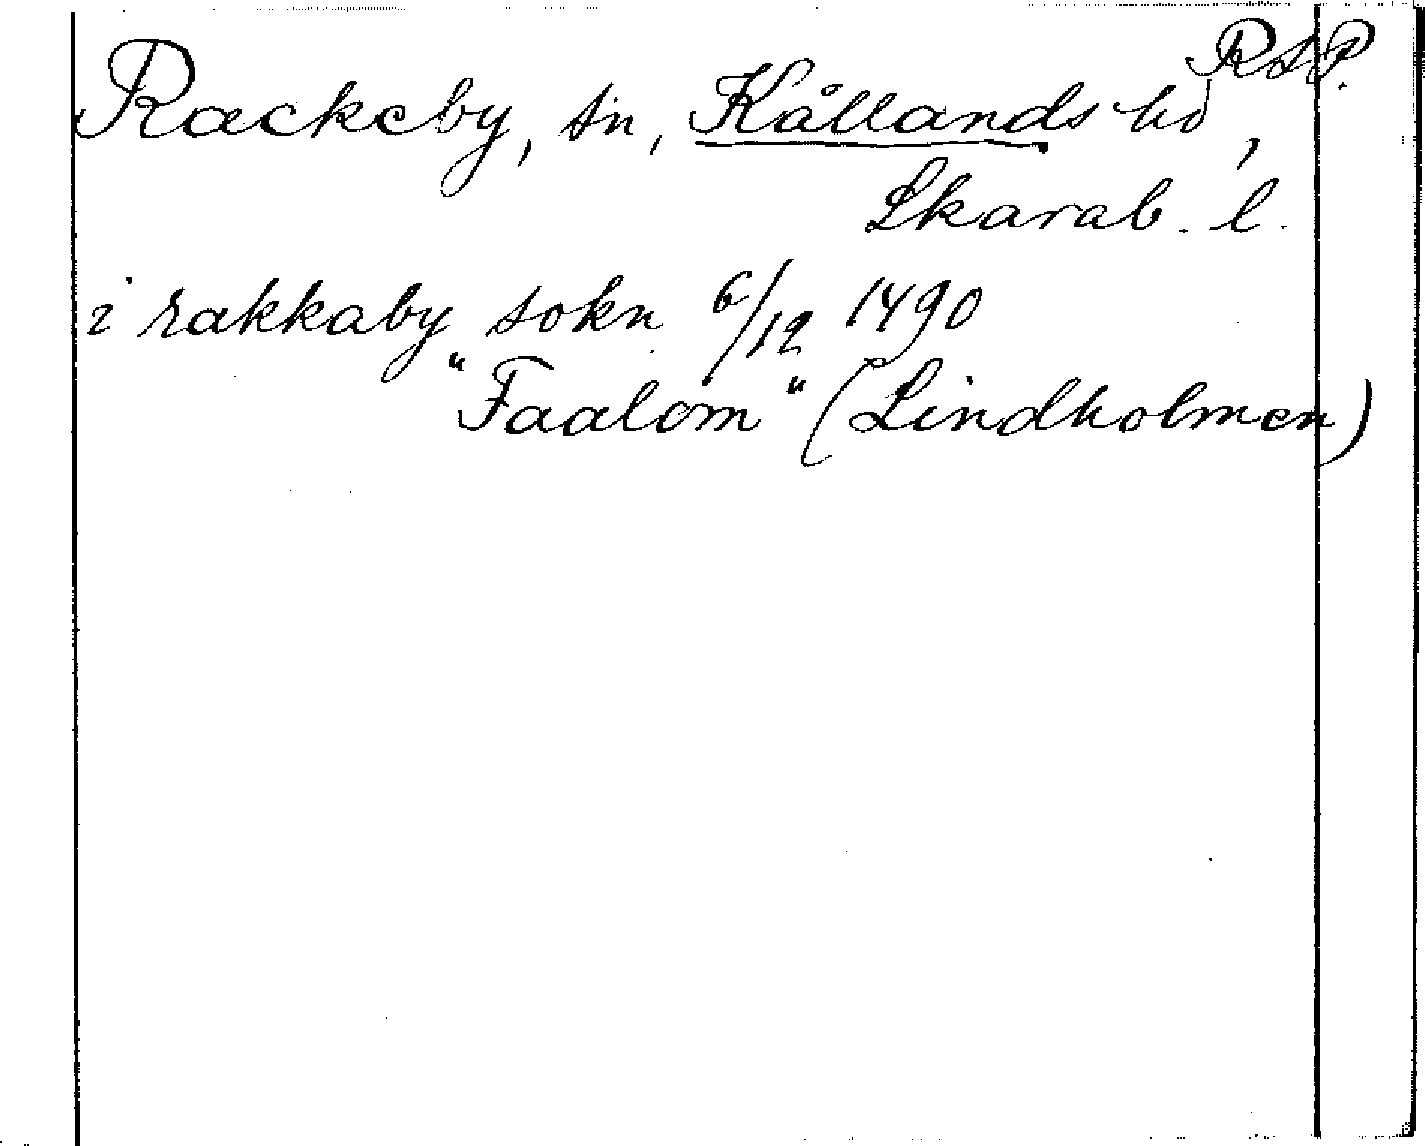 RAP.
Rackeby, sn, Kållands hd,
Skarab. l.
i rakkaby sokn 6/12 1490
"Faalöm" (Lindholmen)